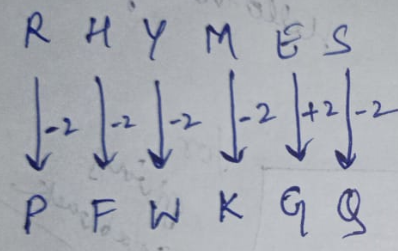 R H Y M E S
-2 -2 -2 -2 +2 -2
P F W K G Q